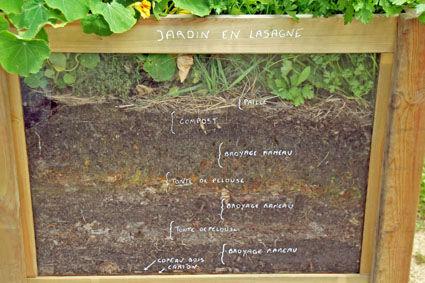 JARDIN EN LASAGNE
PAILLE
COMPOST
BROYAGE RAMEAU
TONTE DE PELOUSE
BROYAGE RAMEAU
TONTE DE PELOUSE
BROYAGE RAMEAU
COPEAU BOIS
CARTON